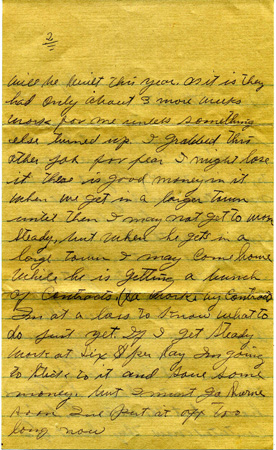 2
will be built this year. As it is they
had only about 3 more weeks
work for me unless something
else turned up. I grabbed this
other job for fear I might lose
it there is good money in it
when we get in a larger town
until then I may not get to work
steady, but when he gets in a
large town I may come home
while he is getting a bunch
of contracts (he works by contract
I'm at a loss to know what
to do just yet. If I get steady
work at six $ per day I'm going
to stick to it and save some
money. but I must go home
soon I've put it off too
long now